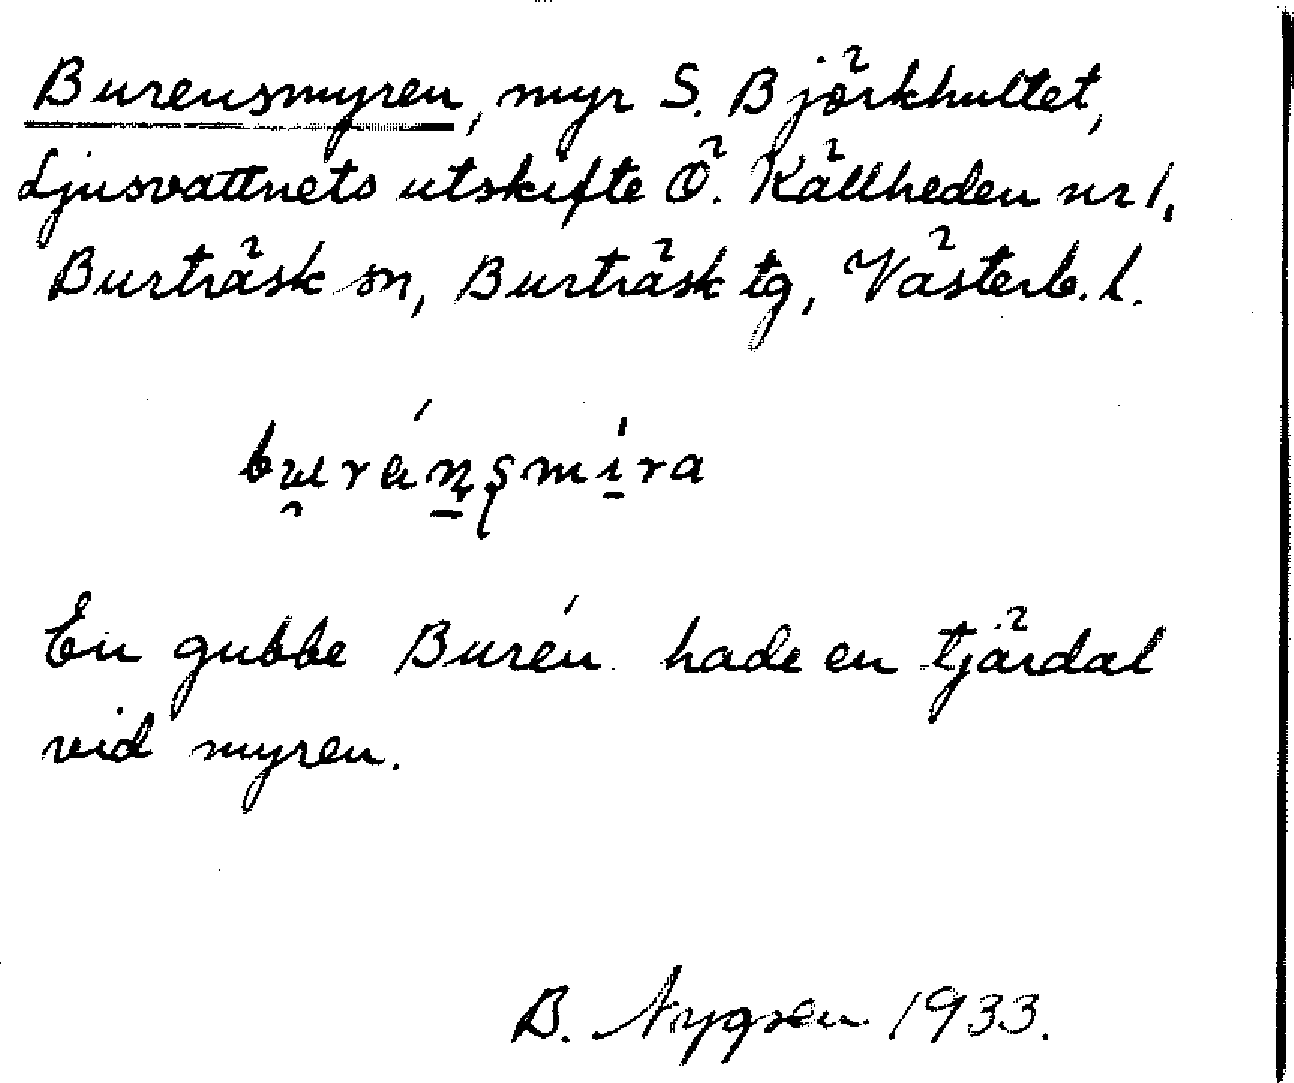 Burensmyren, myr S. Björkhultet,
Ljusvattnets utskifte Ö. Källheden nr 1,
Burträsk sn, Burträsk tg, Västerb. l.
En gubbe Burén hade en tjärdal
vid myren.
B. Nygren 1933.